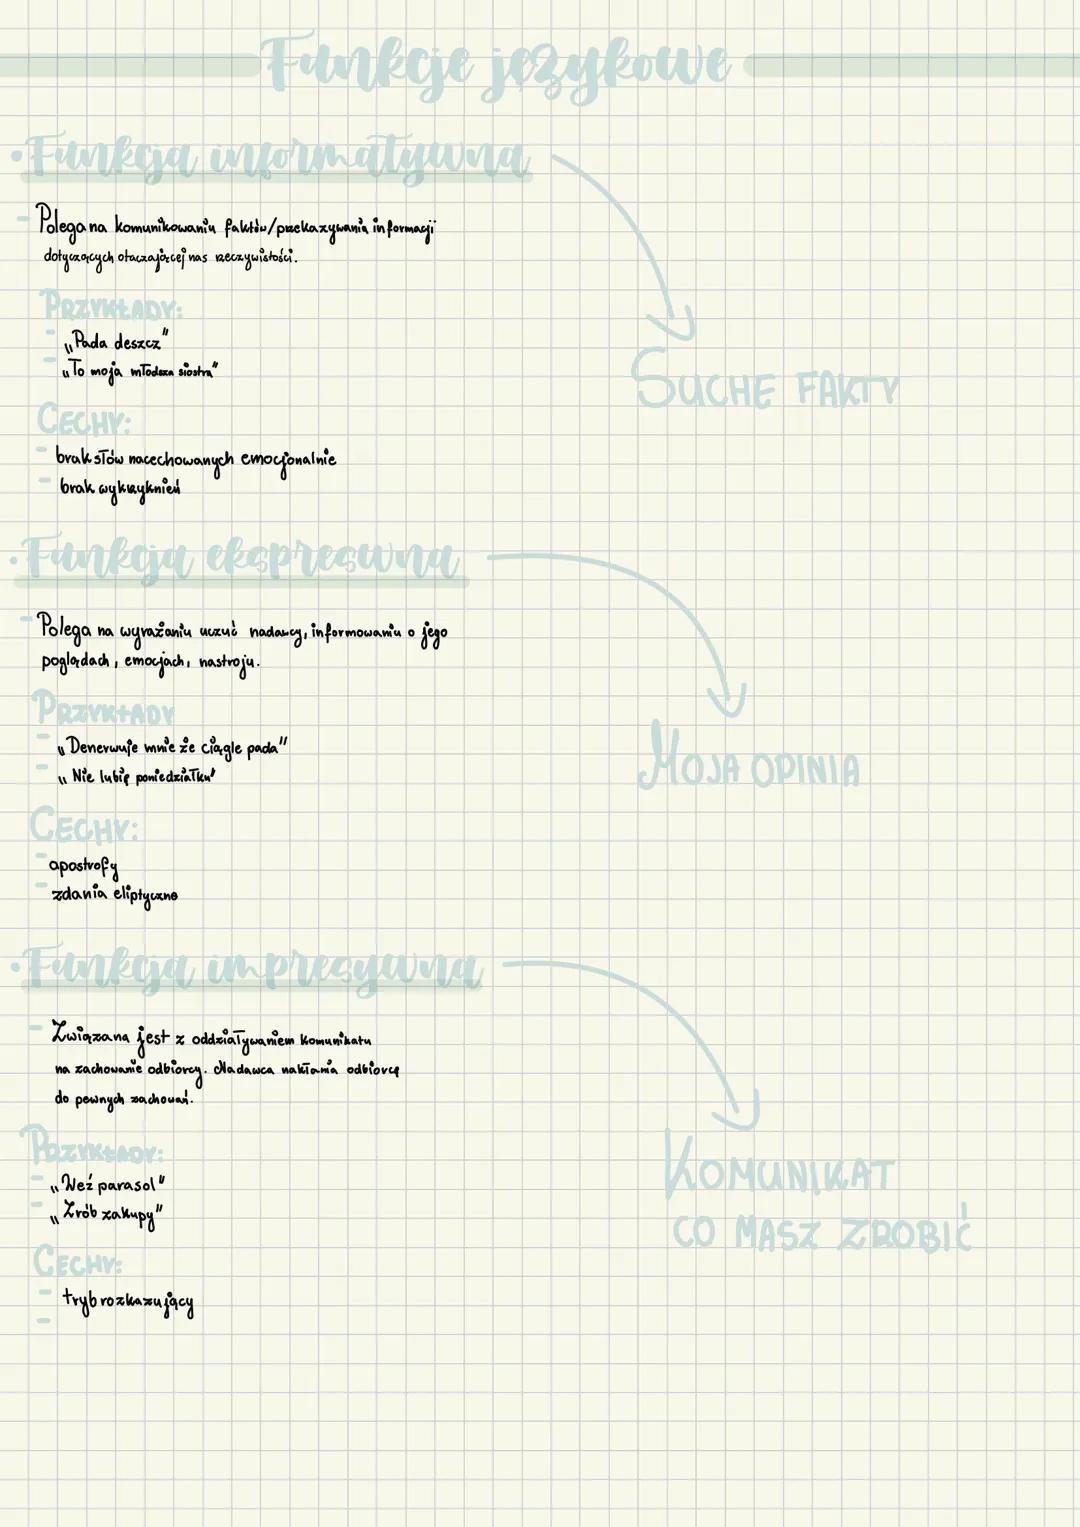 Funkcje językowe
• Funkcja informatywna
- Polega na komunikowaniu faktów/przekazywania informacji
dotyczących otaczającej nas rzeczywistości.
PRZYKŁADY:
- „Pada deszcz"
- „To moja młodsza siostra"
SUCHE FAKTY
CECHY:
- brak słów nacechowanych emocjonalnie
- brak wykrzyknień
• Funkcja ekspresywna
- Polega na wyrażaniu uczuć nadawcy, informowaniu o jego
poglądach, emocjach, nastroju.
PRZYKŁADY
- „Denerwuje mnie że ciągle pada"
- „Nie lubię poniedziałku"
MOJA OPINIA
CECHY:
- apostrofy
- zdania eliptyczne
• Funkcja impresywna
- Związana jest z oddziaływaniem komunikatu
na zachowanie odbiorcy. Nadawca nakłania odbiorcę
do pewnych zachowań.
PRZYKŁADY:
- „Weź parasol"
- „Zrób zakupy"
KOMUNIKAT
CO MASZ ZROBIĆ
CECHY:
- tryb rozkazujący
-